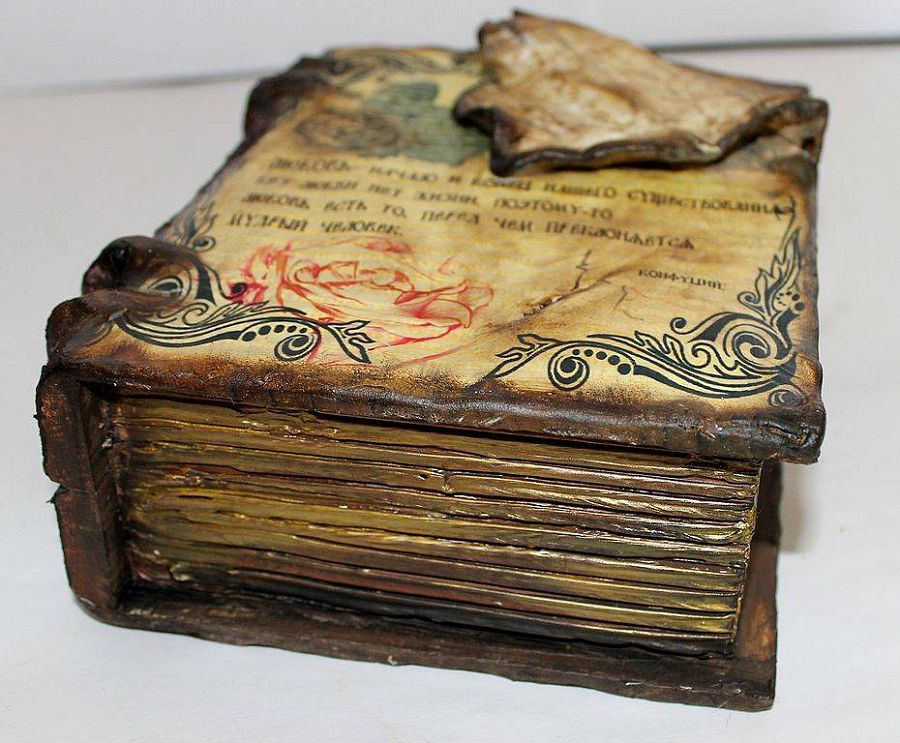 ЛЮБОВЬ НАЧАЛО И КОНЕЦ НАШЕГО СУЩЕСТВОВАНИЯ
БЕЗ ЛЮБВИ НЕТ ЖИЗНИ, ПОЭТОМУ-ТО
ЛЮБОВЬ ЕСТЬ ТО, ПЕРЕД ЧЕМ ПРЕКЛОНЯЕТСЯ
МУДРЫЙ ЧЕЛОВЕК.
КОНФУЦИЙ.